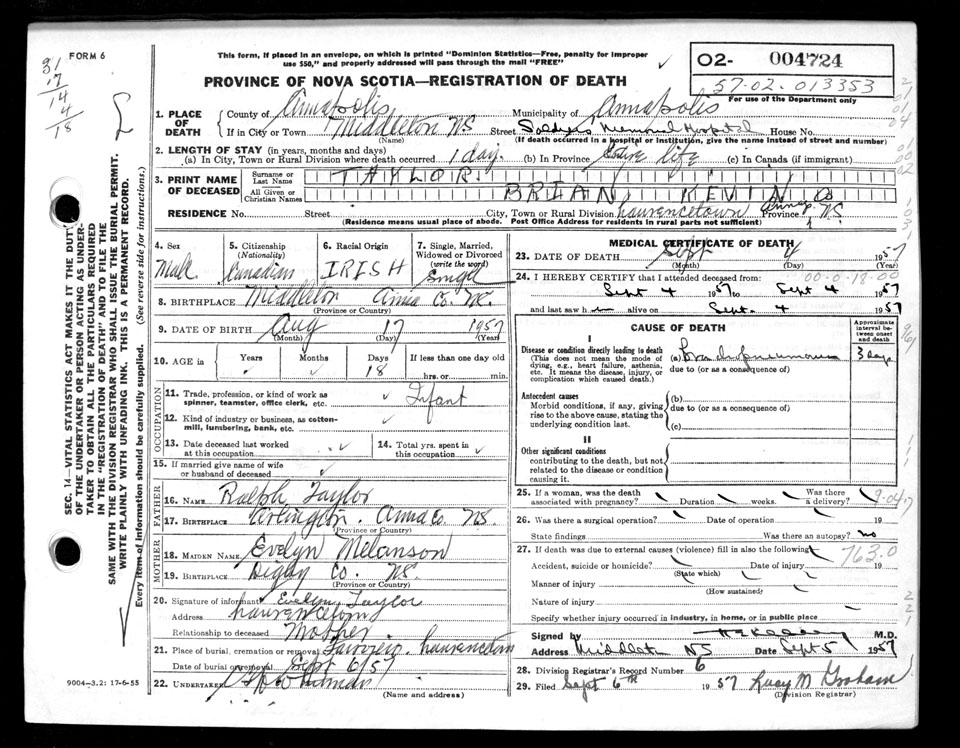 FORM 6
31
17
14
4
18
This form, if placed in an envelope, on which is printed "Dominion Statistics—Free, penalty for improper
use $50," and properly addressed will pass through the mail "FREE"
PROVINCE OF NOVA SCOTIA—REGISTRATION OF DEATH
02- 004724
57-02-013353
For use of the Department only
1. PLACE OF DEATH
County of Annapolis Municipality of Annapolis
If in City or Town Middleton NS Street Soldiers Memorial Hospital House No.
(Name) (If death occurred in a hospital or institution, give the name instead of street and number)
2. LENGTH OF STAY (in years, months and days)
(a) In City, Town or Rural Division where death occurred 1 day. (b) In Province Entire life (c) In Canada (if immigrant)
3. PRINT NAME OF DECEASED
Surname or Last Name TAYLOR
All Given or Christian Names BRIAN KEVIN
RESIDENCE No. Street City, Town or Rural Division Lawrencetown Annap. Co Province NS
(Residence means usual place of abode. Post Office Address for residents in rural parts not sufficient)
4. Sex Male
5. Citizenship (Nationality) Canadian
6. Racial Origin IRISH
7. Single, Married, Widowed or Divorced (write the word) Single
8. BIRTHPLACE Middleton Anna Co. NS.
(Province or Country)
9. DATE OF BIRTH Aug 17 1957
(Month) (Day) (Year)
10. AGE in Years Months Days 18 If less than one day old hrs. or min.
OCCUPATION
11. Trade, profession, or kind of work as spinner, teamster, office clerk, etc. Infant
12. Kind of industry or business, as cotton-mill, lumbering, bank, etc.
13. Date deceased last worked at this occupation
14. Total yrs. spent in this occupation
15. If married give name of wife or husband of deceased
FATHER
16. NAME Ralph Taylor
17. BIRTHPLACE Arlington. Anna Co. NS.
(Province or Country)
MOTHER
18. MAIDEN NAME Evelyn Melanson
19. BIRTHPLACE Digby Co. NS.
(Province or Country)
20. Signature of informant Evelyn Taylor
Address Lawrencetown
Relationship to deceased Mother
21. Place of burial, cremation or removal Fairview. Lawrencetown
Date of burial or removal Sept 6/57
22. UNDERTAKER
(Name and address)
9004—3.2: 17-6-55
MEDICAL CERTIFICATE OF DEATH
23. DATE OF DEATH Sept 4 1957
(Month) (Day) (Year)
24. I HEREBY CERTIFY that I attended deceased from: 00-0-18-00
Sept 4 1957 to Sept 4 1957
and last saw h alive on Sept. 4 1957
CAUSE OF DEATH
Approximate interval between onset and death
I
Disease or condition directly leading to death
(This does not mean the mode of dying, e.g., heart failure, asthenia, etc. It means the disease, injury, or complication which caused death.)
(a) Bronchopneumonia 3 days
due to (or as a consequence of)
Antecedent causes
Morbid conditions, if any, giving rise to the above cause, stating the underlying condition last.
(b)
due to (or as a consequence of)
(c)
II
Other significant conditions
contributing to the death, but not related to the disease or condition causing it.
25. If a woman, was the death associated with pregnancy? Duration weeks. Was there a delivery?
26. Was there a surgical operation? Date of operation 19
State findings Was there an autopsy? no
27. If death was due to external causes (violence) fill in also the following 763.0
Accident, suicide or homicide? Date of injury 19
(State which)
Manner of injury
(How sustained)
Nature of injury
Specify whether injury occurred in industry, in home, or in public place
Signed by M.D.
Address Middleton NS Date Sept 5 1957
28. Division Registrar's Record Number 6
29. Filed Sept 6th 1957 Lucy M Graham
(Division Registrar)
SEC. 14—VITAL STATISTICS ACT MAKES IT THE DUTY
OF THE UNDERTAKER OR PERSON ACTING AS UNDER-
TAKER TO OBTAIN ALL THE PARTICULARS REQUIRED
IN THE "REGISTRATION OF DEATH" AND TO FILE THE
SAME WITH THE DIVISION REGISTRAR WHO SHALL ISSUE THE BURIAL PERMIT.
WRITE PLAINLY WITH UNFADING INK. THIS IS A PERMANENT RECORD.
Every item of information should be carefully supplied. (See reverse side for instructions.)